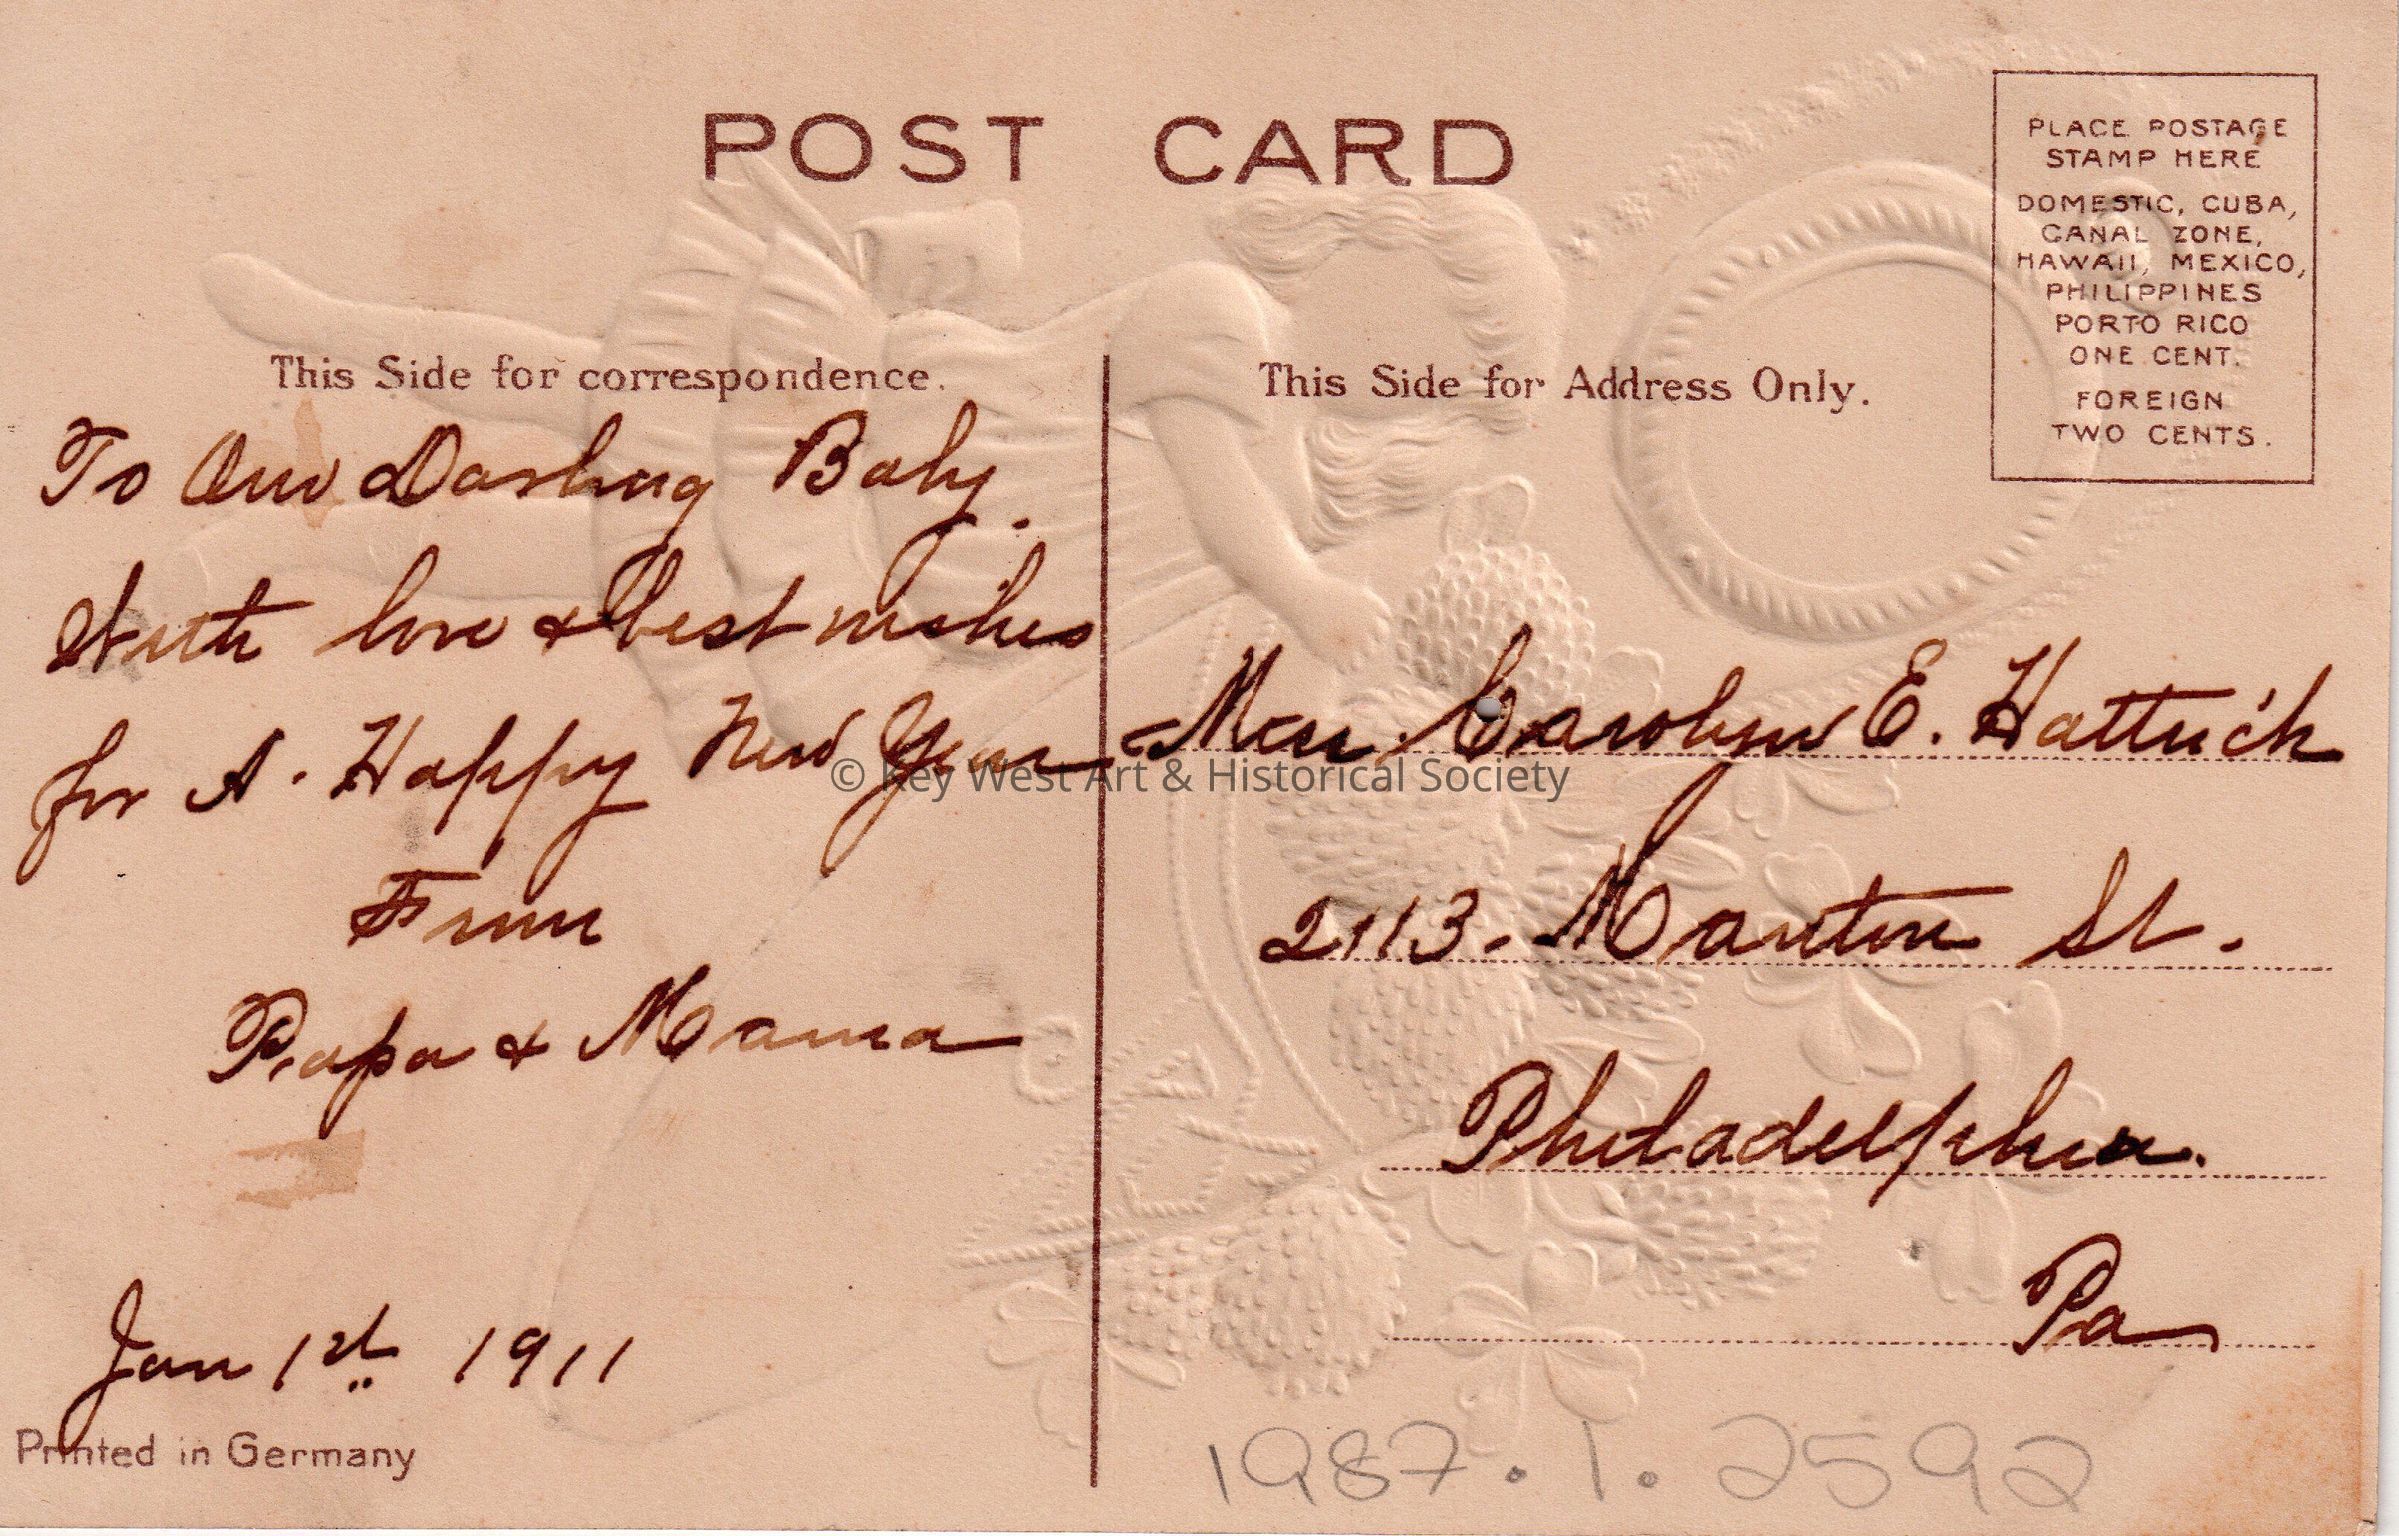 POST CARD
PLACE POSTAGE
STAMP HERE
DOMESTIC, CUBA,
CANAL ZONE,
HAWAII, MEXICO,
PHILIPPINES
PORTO RICO
ONE CENT.
FOREIGN
TWO CENTS.
This Side for correspondence.
To Our Darling Baby.
With love & best wishes
for A. Happy New Year
From
Papa & Mama
Jan 1st 1911
Printed in Germany
This Side for Address Only.
Carolyn E. Hattrick
2113. Manton St.
Philadelphia.
Pa
1987.1.2592
© Key West Art & Historical Society